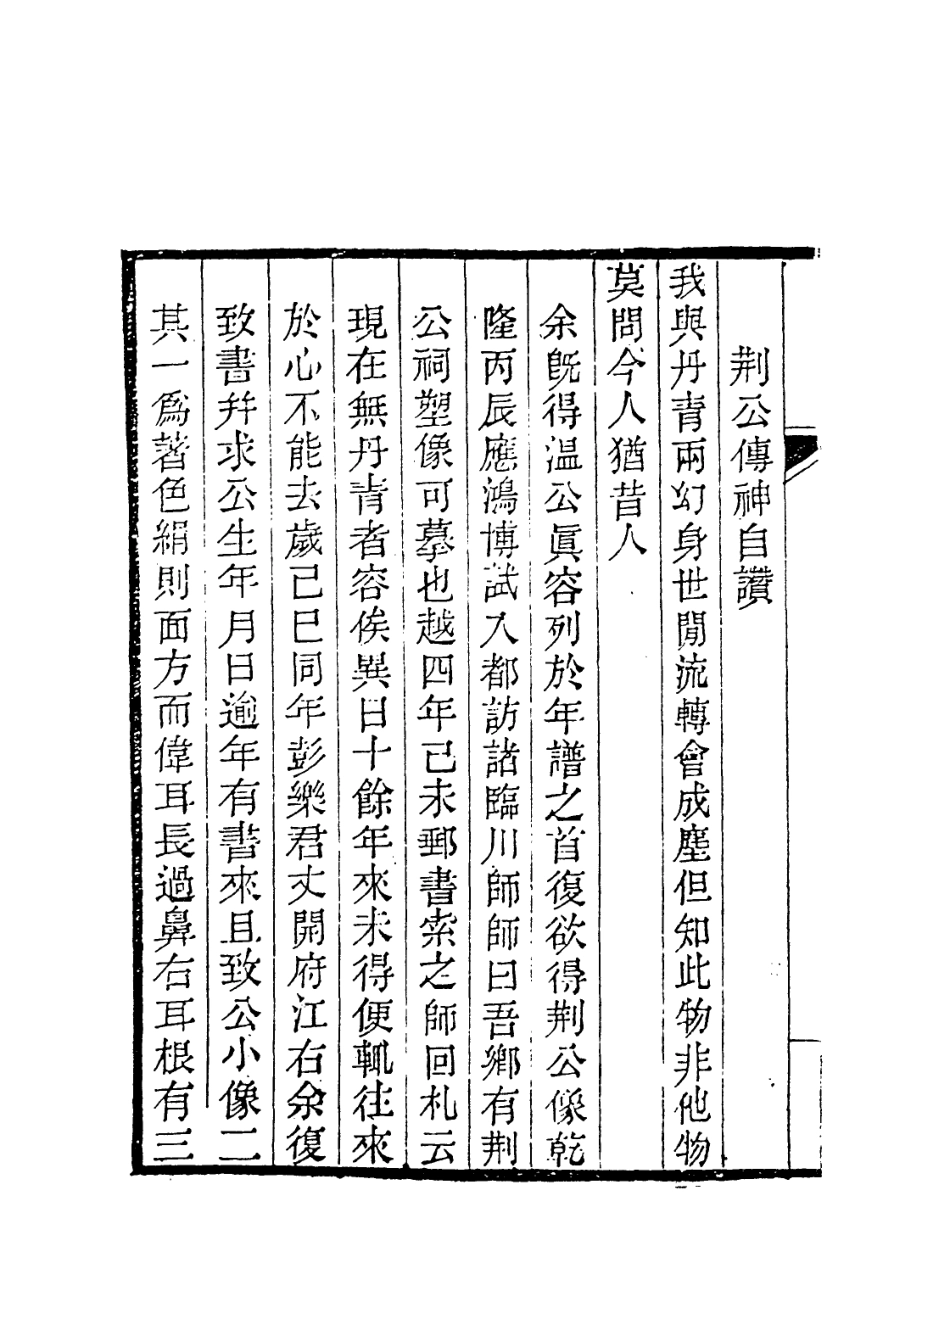 荆公傳神自讚
我與丹青兩幻身世閒流轉會成塵但知此物非他物
莫問今人猶昔人
余旣得温公眞容列於年譜之首復欲得荆公像乾
隆丙辰應鴻博試入都訪諸臨川師師曰吾鄉有荆
公祠塑像可摹也越四年己未郵書索之師回札云
現在無丹青者容俟異日十餘年來未得便輒往來
於心不能去歲己巳同年彭樂君丈開府江右余復
致書并求公生年月日逾年有書來且致公小像二
其一爲著色絹則面方而偉耳長過鼻右耳根有三